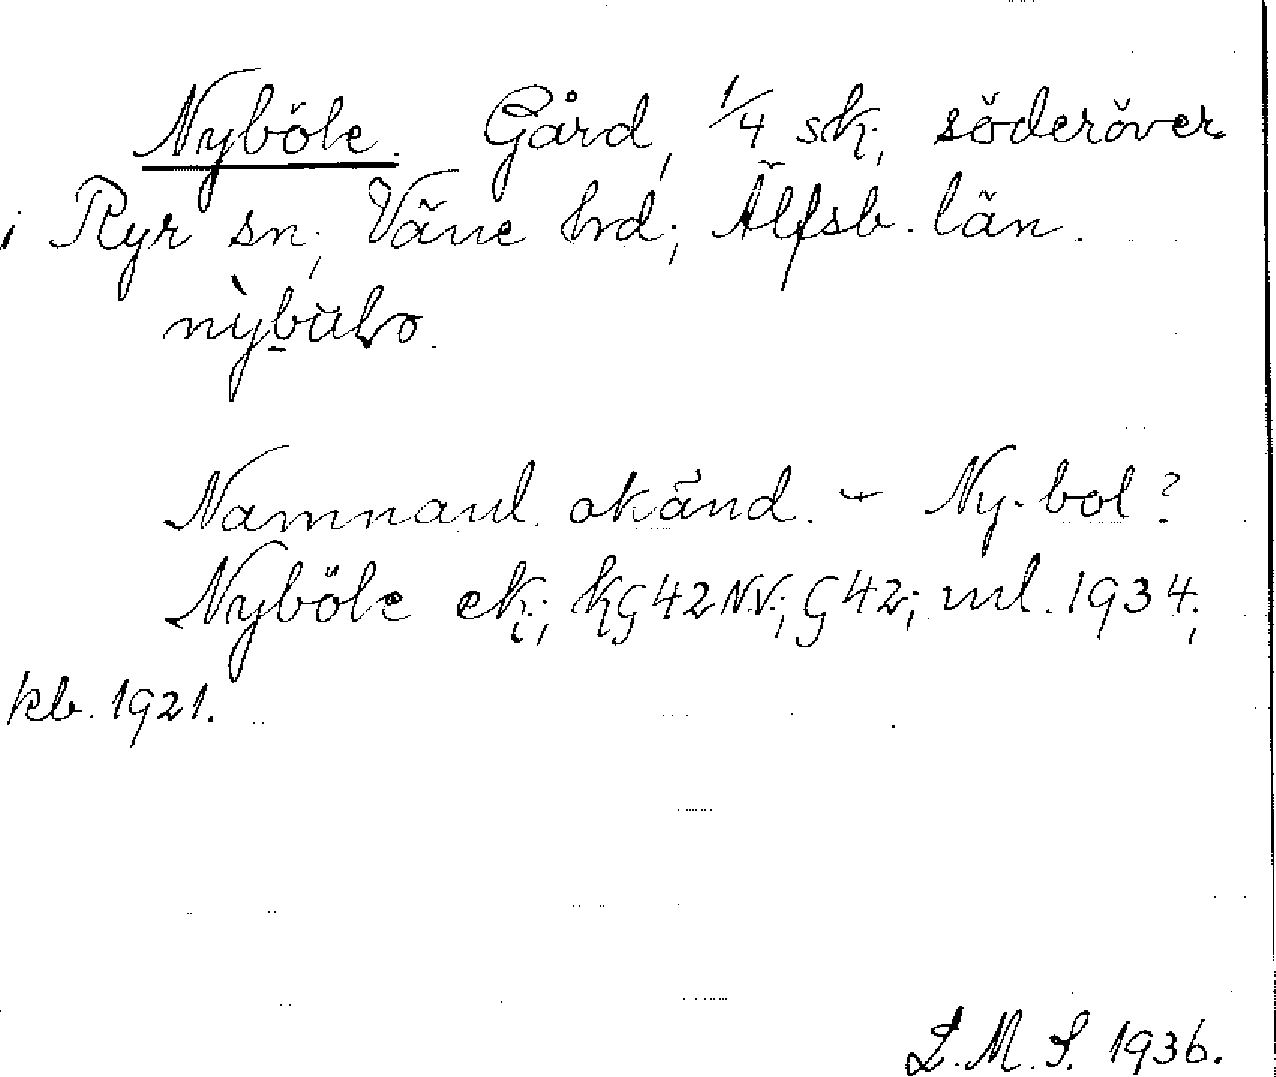 Nyböle. Gård, 1/4 sk., söderöver
i Ryr sn, Väne hd; Älfsb. län.
Namnanl. okänd. - Ny-bol?
Nyböle ek; kG42NV; G42; ml. 1934;
kb. 1921.
L.M.S. 1936.